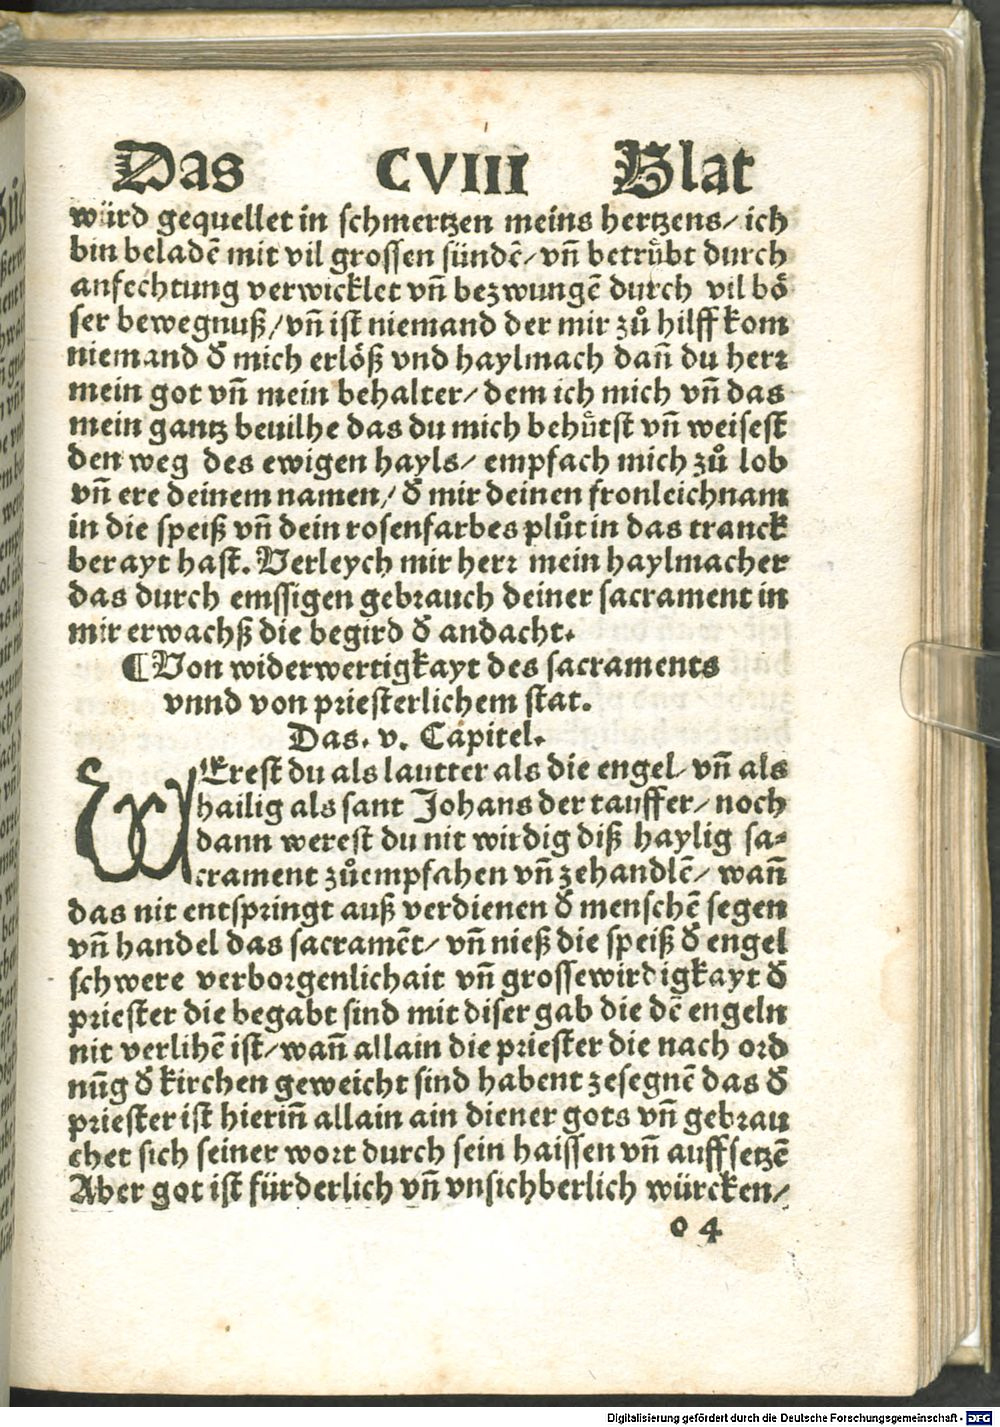 Das CVIII Blat
würd gequellet in schmertzen meins hertzens/ ich
bin beladē mit vil grossen sündē/ vn̄ betruͤbt durch
anfechtung verwicklet vn̄ bezwungē durch vil boͤ
ser bewegnuß/ vn̄ ist niemand der mir zuͦ hilff kom
niemand đ mich erloͤß vnd haylmach dan̄ du herꝛ
mein got vn̄ mein behalter/ dem ich mich vn̄ das
mein gantz beuilhe das du mich behuͤtst vn̄ weisest
den weg des ewigen hayls/ empfach mich zuͦ lob
vn̄ ere deinem namen/ đ mir deinen fronleichnam
in die speiß vn̄ dein rosenfarbes pluͦt in das tranck
berayt hast. Verleych mir herꝛ mein haylmacher
das durch emssigen gebꝛauch deiner sacrament in
mir erwachß die begird đ andacht.
¶Von widerwertigkayt des sacraments
vnnd von pꝛiesterlichem stat.
Das. v. Capitel.
WErest du als lautter als die engel/ vn̄ als
hailig als sant Johans der tauffer/ noch
dann werest du nit wirdig diß haylig sa⸗
crament zuͦempfahen vn̄ zehandlē/ wan̄
das nit entspꝛingt auß verdienen đ menschē segen
vn̄ handel das sacramēt/ vn̄ nieß die speiß đ engel
schwere verboꝛgenlichait vn̄ grossewirdigkayt đ
pꝛiester die begabt sind mit diser gab die dē engeln
nit verlihē ist/ wan̄ allain die pꝛiester die nach oꝛd
nūg đ kirchen geweicht sind habent zesegnē das đ
pꝛiester ist hierin̄ allain ain diener gots vn̄ gebꝛau
chet sich seiner woꝛt durch sein haissen vn̄ auffsetzē
Aber got ist fürderlich vn̄ vnsichberlich würcken/
o 4
Digitalisierung gefördert durch die Deutsche Forschungsgemeinschaft - DFG